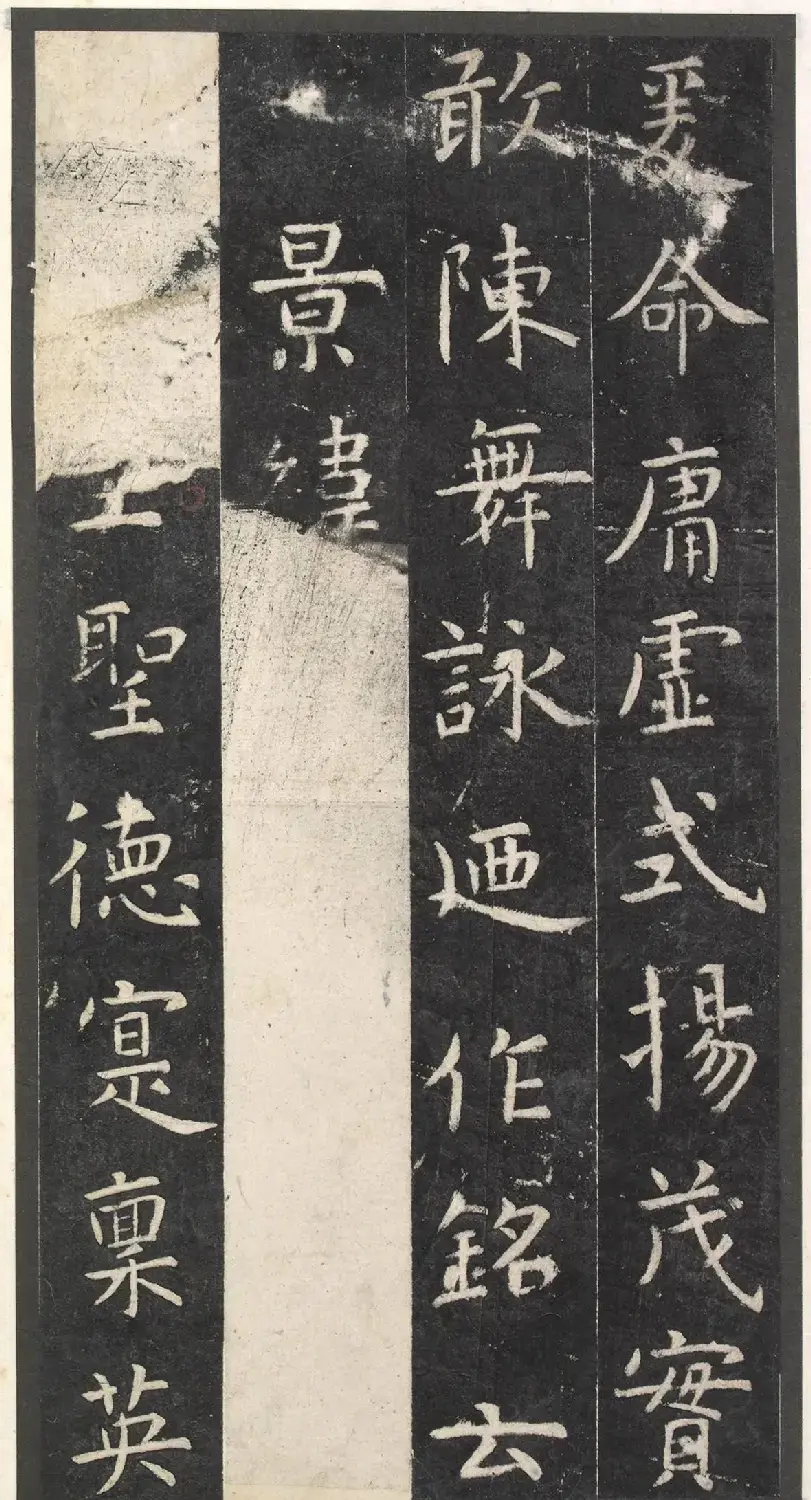 爰命庸虛式揚茂實
敢陳舞詠迺作銘云
景緯
上聖德寔稟英